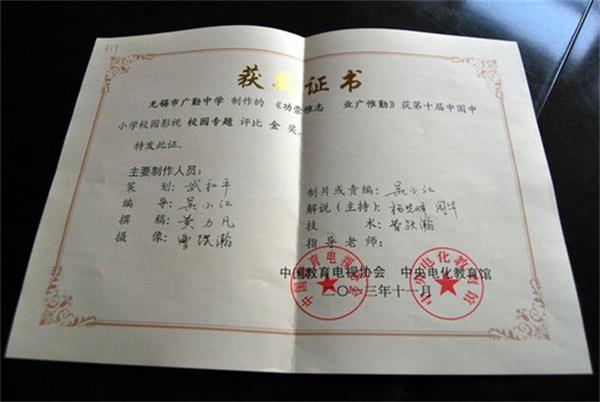 319
获奖证书
无锡市广勤中学 制作的 《功崇惟志 业广惟勤》获第十届中国中
小学校园影视 校园专题 评比 金 奖。
特发此证。
主要制作人员：
策 划：武和平
编 导：吴小江
撰 稿：黄力凡
摄 像：曹跃瀚
制片或责编：吴小江
解说（主持）： 周华
技 术：曹跃瀚
指 导 老 师：
中国教育电视协会 中央电化教育馆
二〇一三年十一月
中国教育电视协会
中央电化教育馆